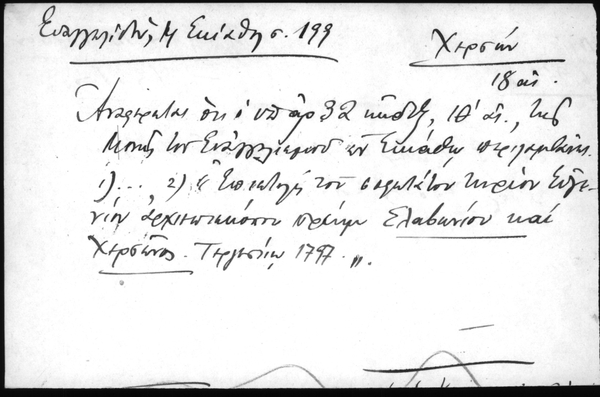 Ευαγγελίδου, Η Σκίαθος σ. 199
Χερσών
18 αι.
Αναφέρεται ότι ο υπ αρ 32 κώδιξ, ΙΘ' αι., της
Μονής του Ευαγγελισμού εν Σκιάθω περιλαμβάνει
1)..., 2) "Επιστολές του σοφωτάτου κυρίου Ευγε-
νίου αρχιεπισκόπου πρώην Σλαβωνίου και
Χερσώνος. Τεργέστη, 1797.".